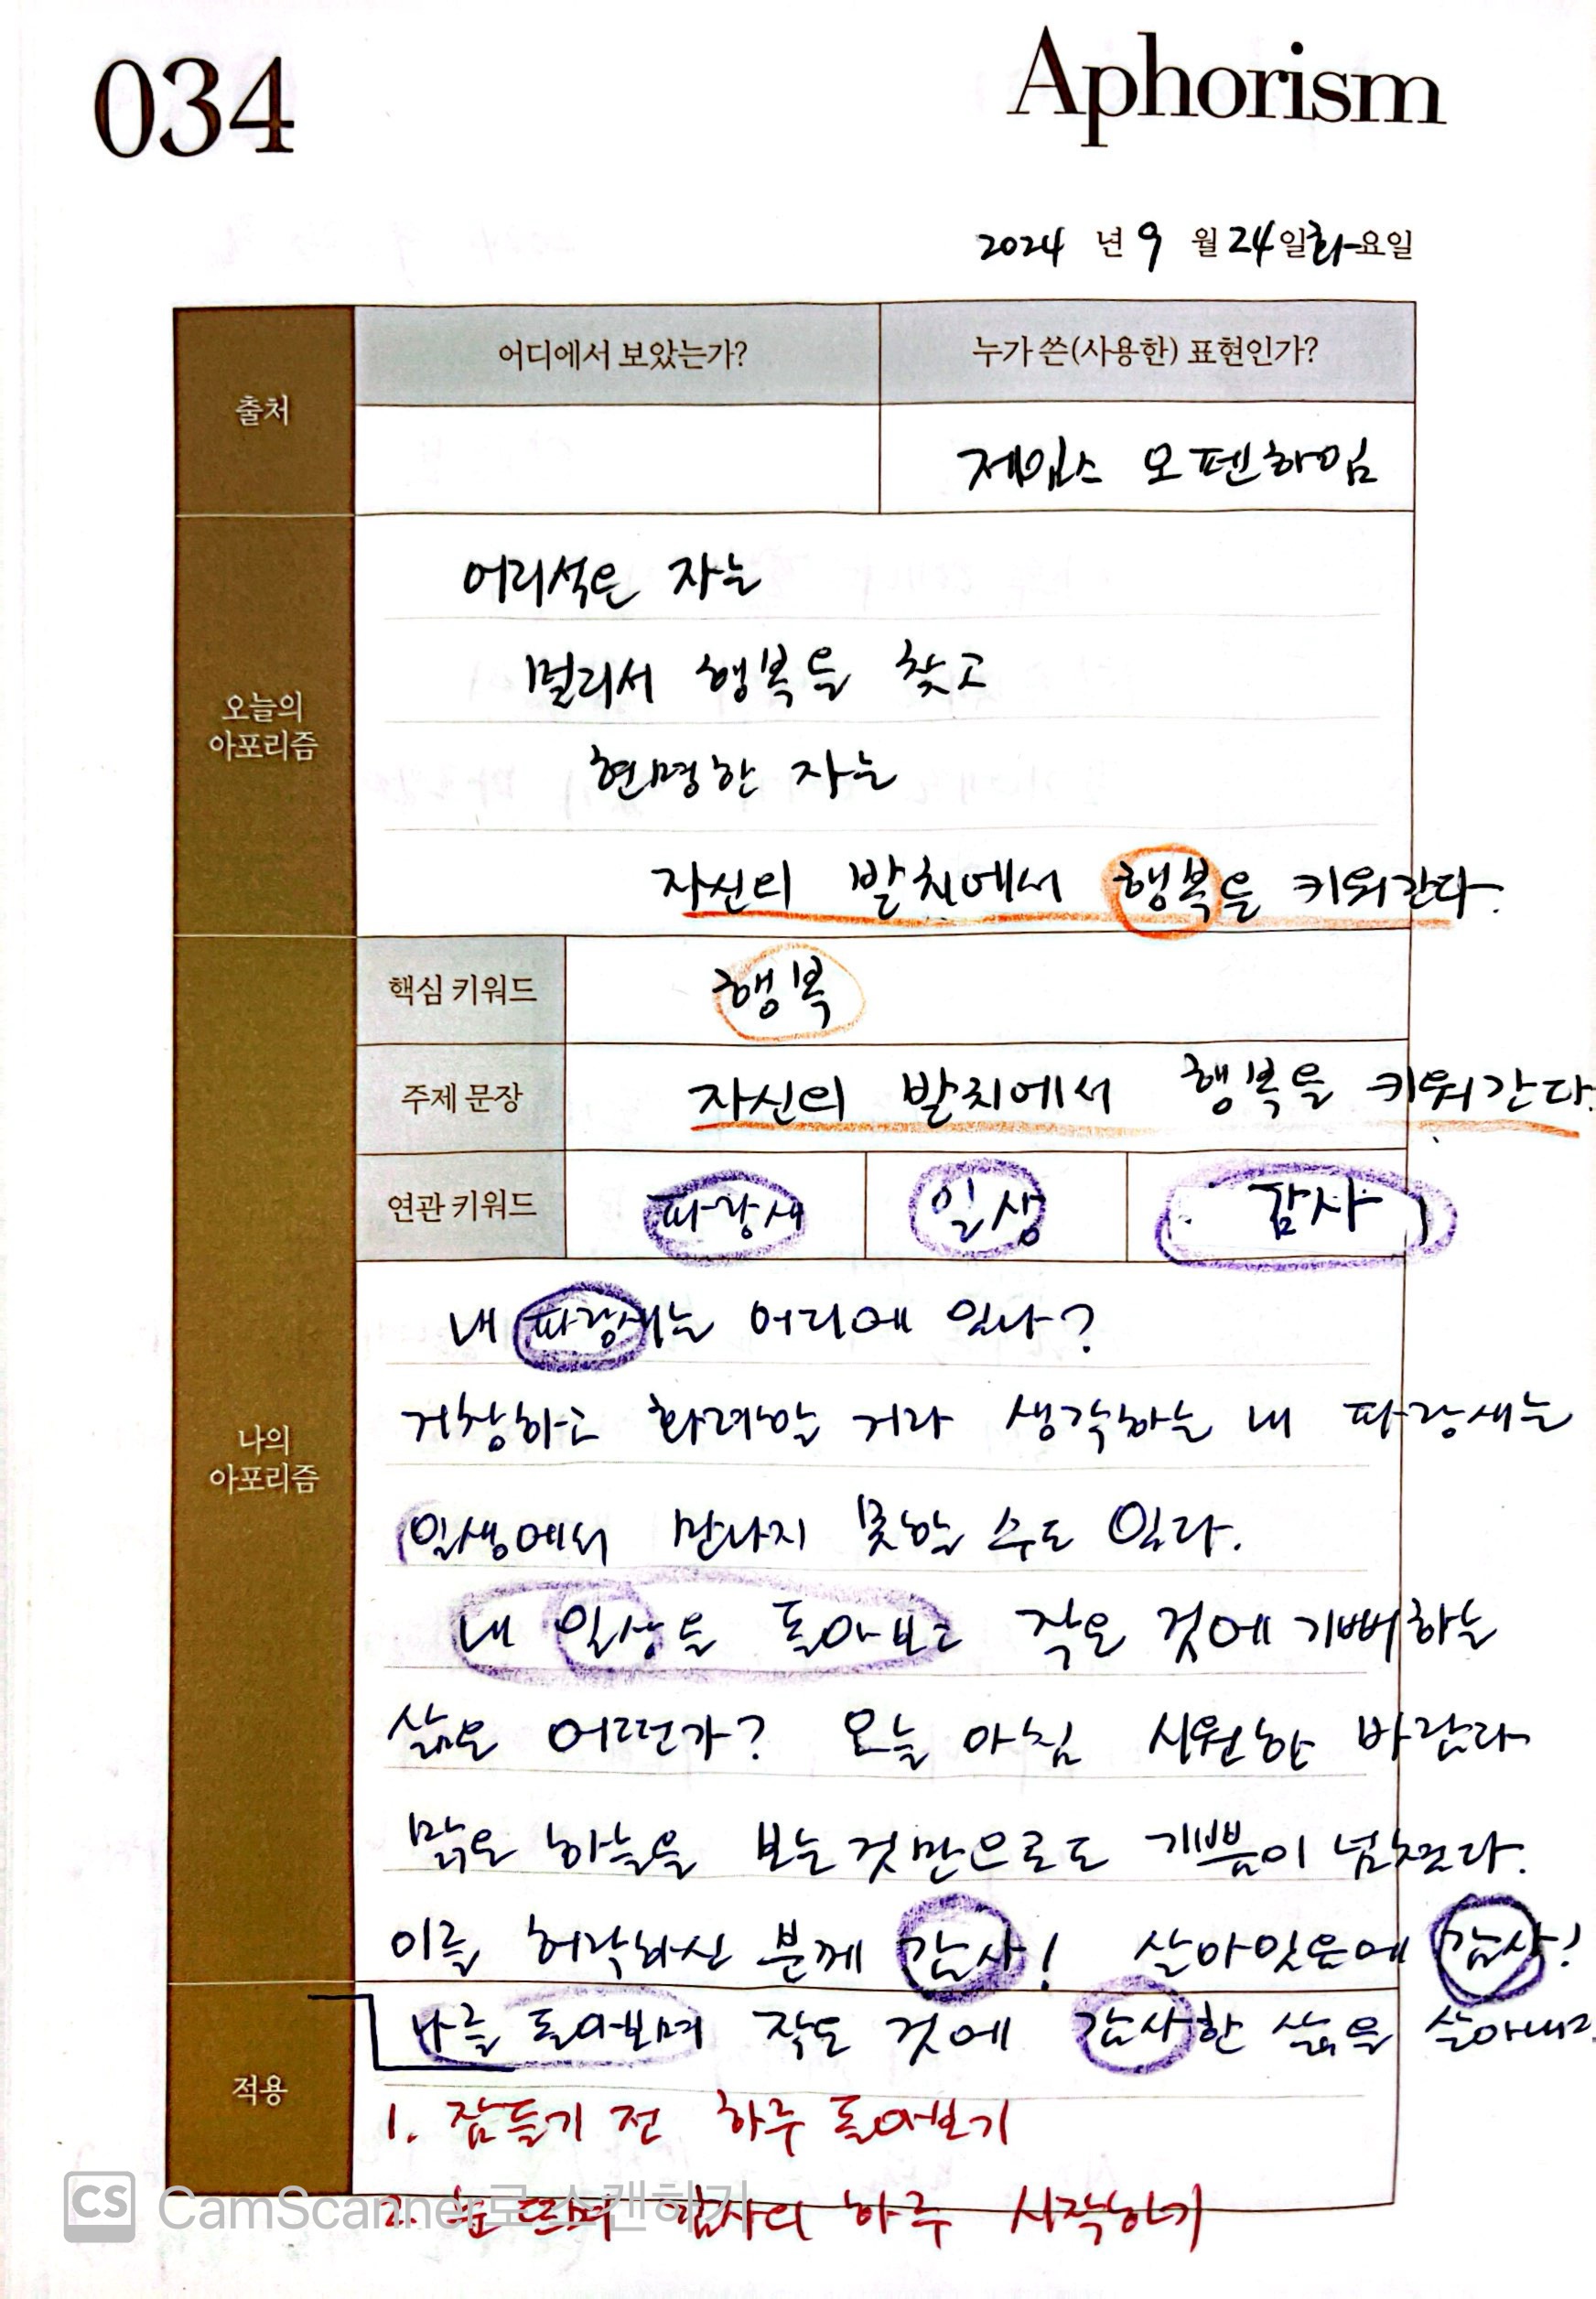 034
Aphorism
2024 년 9 월 24일 화요일
출처
어디에서 보았는가?
누가 쓴(사용한) 표현인가?
제임스 오펜하임
오늘의
아포리즘
어리석은 자는
멀리서 행복을 찾고
현명한 자는
자신의 발치에서 행복을 키워간다.
나의
아포리즘
핵심 키워드
행복
주제 문장
자신의 발치에서 행복을 키워간다.
연관 키워드
파랑새
일상
감사
내 파랑새는 어디에 있나?
거창하고 화려할 거라 생각하는 내 파랑새는
일생에서 만나지 못할 수도 있다.
내 일상을 돌아보고 작은 것에 기뻐하는
삶은 어떤가? 오늘 아침 시원한 바람과
맑은 하늘을 보는 것만으로도 기쁨이 넘친다.
이를 허락하신 분께 감사! 살아있음에 감사!
나를 돌아보며 작은 것에 감사한 삶을 살아내고
적용
1. 잠들기 전 하루 돌아보기
2. 눈 뜨며 감사의 하루 시작하기
CS CamScanner로 스캔하기